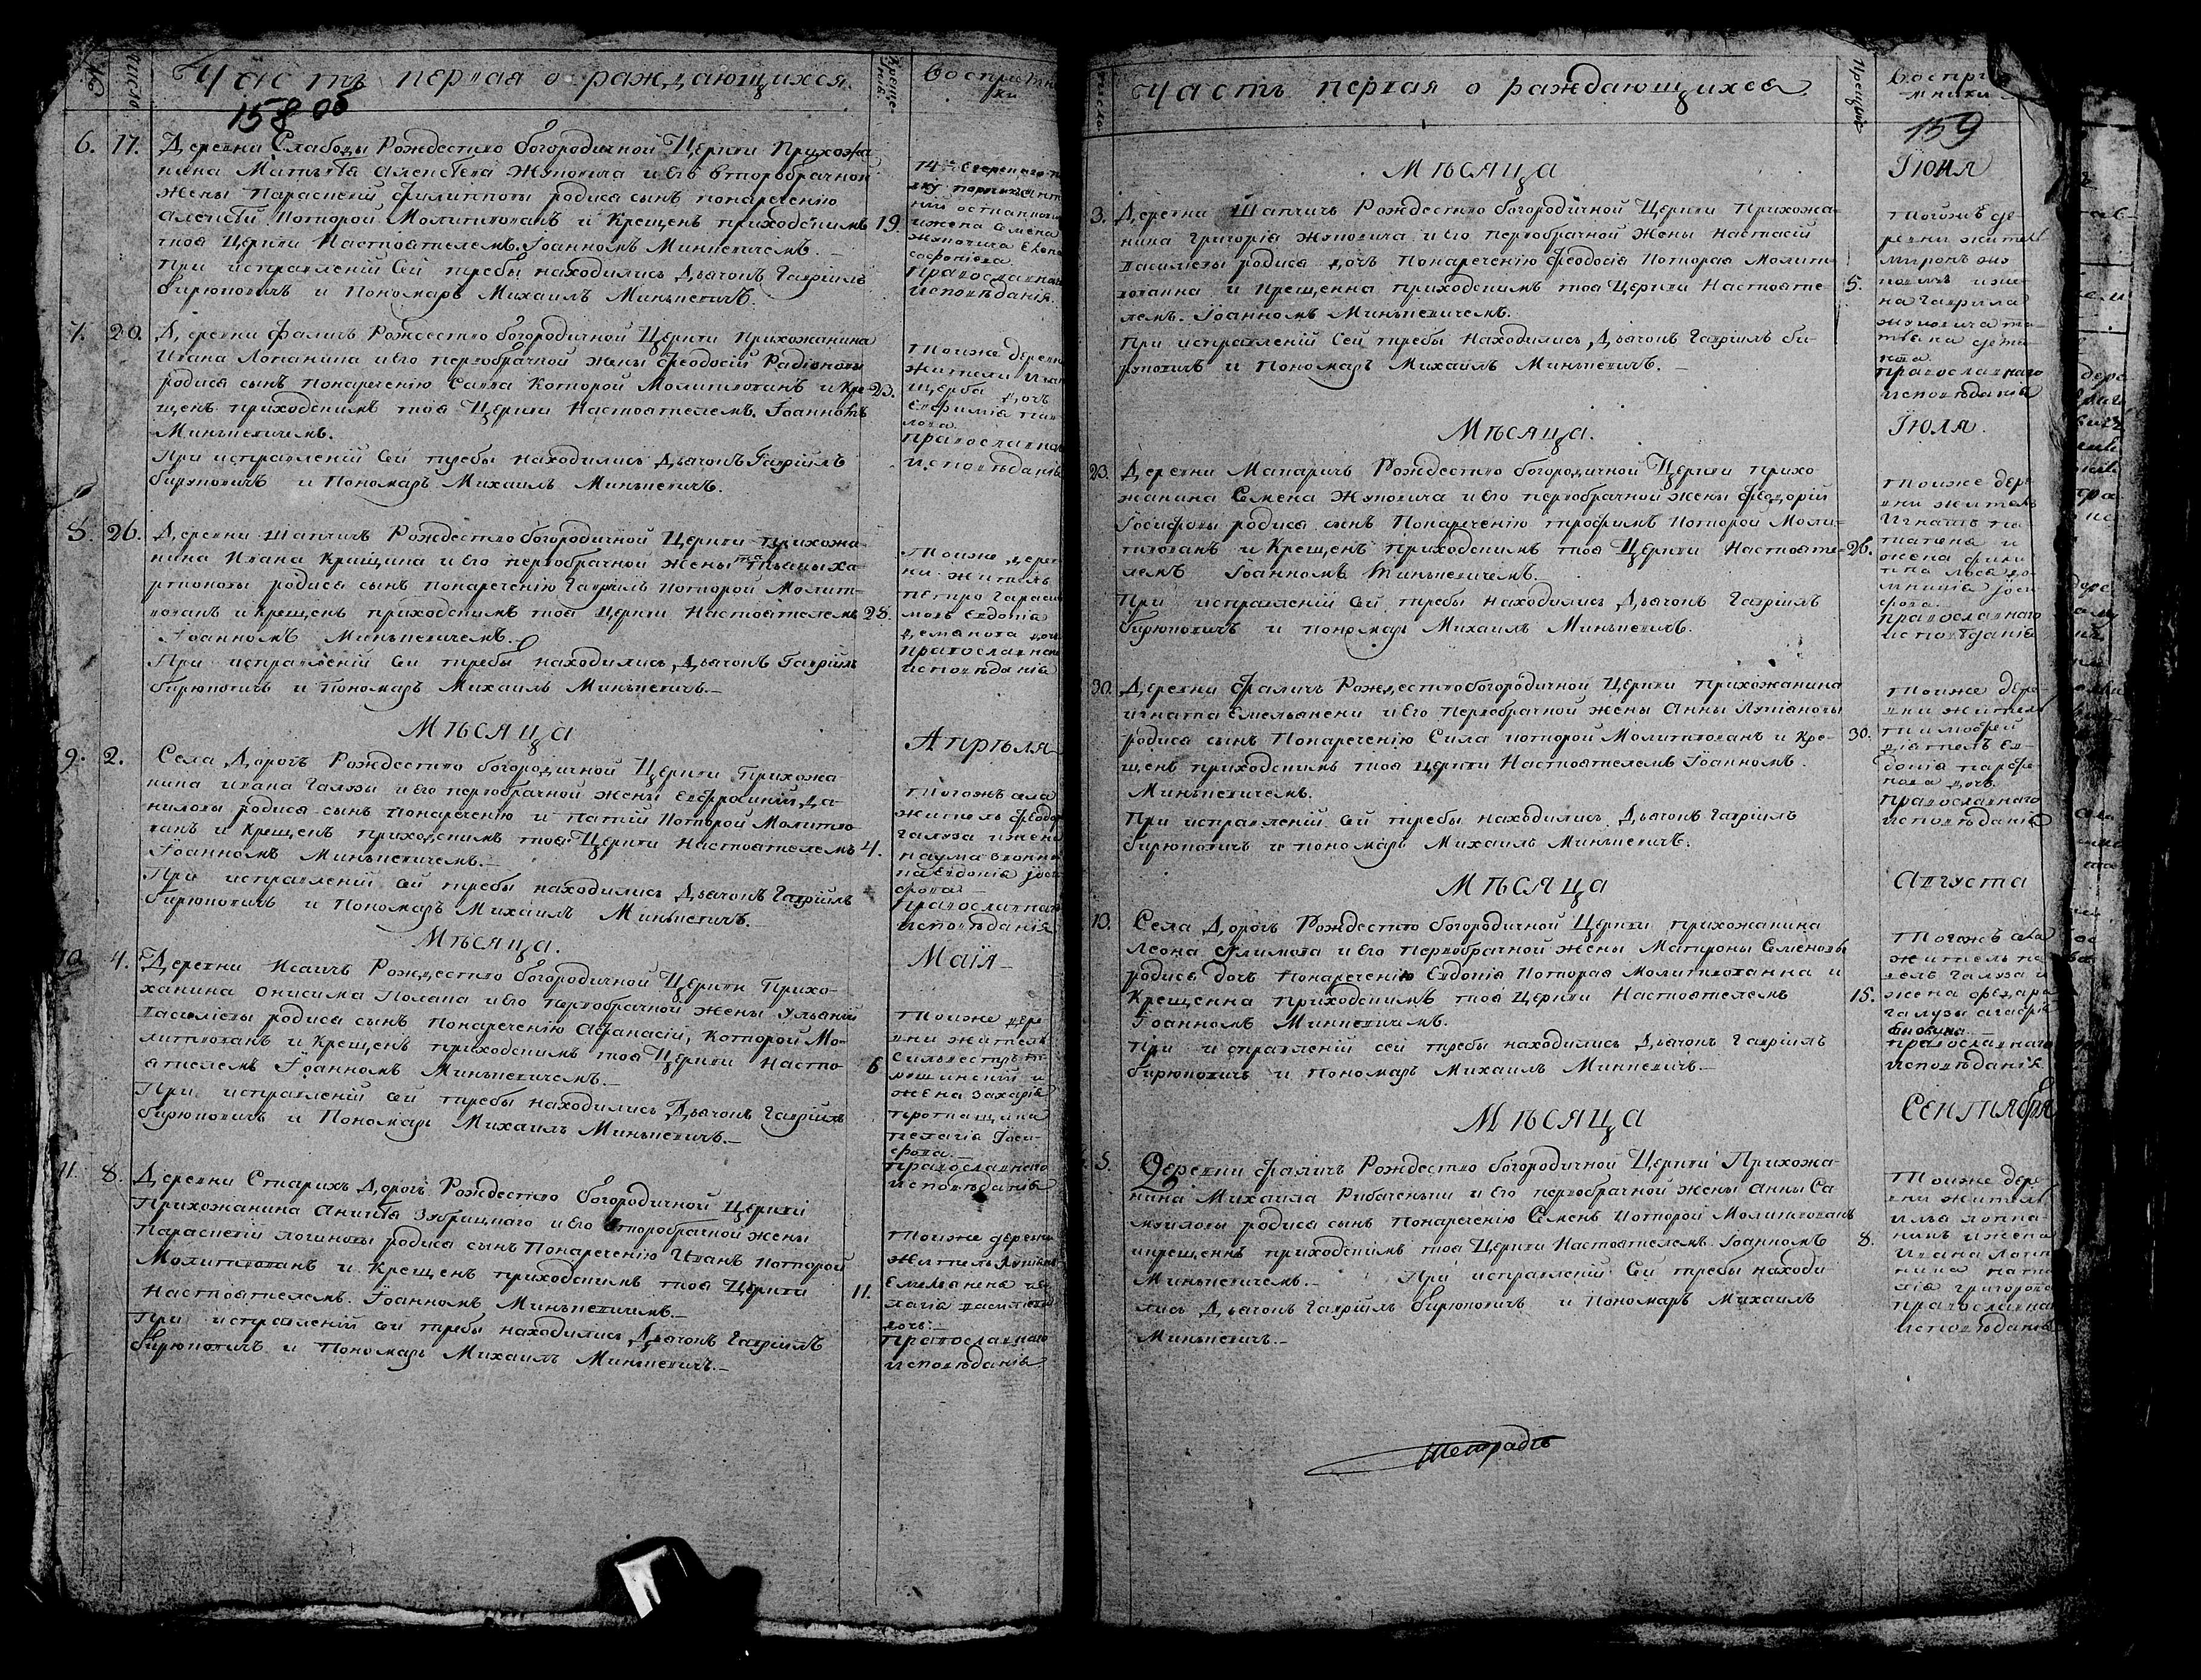 Часть первая о раждающихся.
158 об
6. 17. Деревни Слабоды Рождество богородичной Церкви Прихожа
нина Матвѣа Алексѣева Жуковича и его второбрачной
Жены Параскевіи родися сынъ понареченію
Алексѣй которой Молитвованъ и Крещенъ приходскимъ 19.
тоя Церкви Настоятелемъ Іоанномъ Минкевичемъ. —
При исправленіи Сей требы находились Дьячокъ Гавріилъ
Бирюковичъ и Пономарь Михаилъ Минкевичъ.
жена Семена
Жуковича
Православнаго
исповѣданія.
7. 20. Деревни Фаличъ Рождество богородичной Церкви Прихожанина
Ивана Лопанина и его первобрачной жены Феодосіи Радіоновы
родися сынъ понареченію Савва Которой Молитвованъ и Кре 23.
щенъ приходскимъ тоя Церкви Настоятелемъ Іоанномъ
Минкевичемъ.
При исправленіи Сей требы находились Дьячокъ Гавріилъ
Бирюковичъ и Пономарь Михаилъ Минкевичъ.
тоиже деревни
жители
щерба дочь
Евфимія
православнаго
исповѣданія
8. 26. Деревни Шапчичъ Рождество богородичной Церкви прихожа
нина Ивана Кращина и его первобрачной жены Татьяны Ха
ритоновы родися сынъ понареченію Гавріилъ которой Молит
вованъ и Крещенъ приходскимъ тоя Церкви Настоятелемъ 28.
Іоанномъ Минкевичемъ.
При исправленіи Сей требы находились Дьячокъ Гавріилъ
Бирюковичъ и Пономарь Михаилъ Минкевичъ. —
Тоиже дерев
ни житель
петро Гараси
мовъ Евдокіа
Демянова дочь
православнаго
исповѣданія
Мѣсяца Апрѣля
9. 2. Села Дорогъ Рождество богородичной Церкви Прихожа
нина Ивана Галузы и его первобрачной жены Евфросиніи Да
ниловы родися сынъ понареченію Ипатій которой Молитво
ванъ и Крещенъ приходскимъ тоя Церкви Настоятелемъ 4.
Іоанномъ Минкевичемъ. —
При исправленіи Сей требы находились Дьячокъ Гавріилъ
Бирюковичъ и Пономарь Михаилъ Минкевичъ. —
Тогожъ села
житель Феодор
Галуза и жена
наума
Евдокіа Іоси
фова —
православнаго
исповѣданія
Мѣсяца. Маія —
10. 4. Деревни Исаичъ Рождество богородичной Церкви Прихо
жанина Онисима Полана и его первобрачной жены Ульяніи
Василіевы родися сынъ понареченію Афанасій, которой Мо
литвованъ и Крещенъ приходскимъ тоя Церкви Настоя 6
ятелемъ Іоанномъ Минкевичемъ. —
При исправленіи Сей требы находились Дьячокъ Гавріилъ
Бирюковичъ и Пономарь Михаилъ Минкевичъ. —
Тоиже дере
вни житель
Сильвестръ
и
жена Захаріа
пелагіа Іоси
фова. —
православнаго
исповѣданія
11. 8. Деревни Старихъ Дорогъ Рождество богородичной Церкви
Прихожанина Аникѣа Зубрицкаго и его второбрачной жены
Параскевіи логиновы родися сынъ Понареченію Иванъ которой
Молитвованъ и Крещенъ приходскимъ тоя Церкви
Настоятелемъ Іоанномъ Минкевичемъ. — 11.
При исправленіи Сей требы находились Дьячокъ Гавріилъ
Бирюковичъ и Пономарь Михаилъ Минкевичъ. —
тоиже деревни
житель Лукіанъ
Емельянена
василіева
дочь. —
православнаго
исповѣданія.
Часть первая о раждающихся.
159
Мѣсяца Іюня
3. Деревни Шапчичъ Рождество богородичной Церкви Прихожа
нина Григоріа Жуковича и его первобрачной Жены Настасіи
Василіевы родися дочь Понареченію Феодосіа Которая Молит
вованна и Крещенна приходскимъ тоя Церкви Настояте 5.
лемъ Іоанномъ Минкевичемъ.
При исправленіи Сей требы Находились Дьячокъ Гавріилъ Би
рюковичъ и Пономарь Михаилъ Минкевичъ. —
тоиже де
ревни житель
миронъ жу
ковичъ и же
на Гаврила
жуковича та
тіана
православнаго
исповѣданія
Мѣсяца. Іюля.
23. Деревни Макаричъ Рождество богородичной Церкви прихо
жанина Семена Жуковича и его первобрачной жены Феодоріи
Іосифовы родися сынъ Понареченію трофимъ Которой Моли
твованъ и Крещенъ приходскимъ тоя Церкви Настояте 26.
лемъ Іоанномъ Минкевичемъ.
При исправленіи Сей требы находились Дьячокъ Гавріилъ
Бирюковичъ и пономарь Михаилъ Минкевичъ.
тоиже дере
вни житель
Игнатъ
и
жена фили
па
Іоси
фова.
православнаго
исповѣданія
30. Деревни Фаличъ Рождество богородичной Церкви прихожанина
Игната Емельянени и его первобрачной жены Анны Лукіановы
родися сынъ Понареченію Сила которой Молитвованъ и Кре 30.
щенъ приходскимъ тоя Церкви Настоятелемъ Іоанномъ
Минкевичемъ.
При исправленіи Сей требы находились Дьячокъ Гавріилъ
Бирюковичъ и пономарь Михаилъ Минкевичъ.
тоиже дере
вни житель
тимофей
Ев
докіа парфе
нова дочь.
православнаго
исповѣданія
Мѣсяца Августа
13. Села Дорогъ Рождество богородичной Церкви прихожанина
Леона Климова и его первобрачной жены Матроны Семеновы
родися дочь Понареченію Евдокіа Которая Молитвованна и
Крещенна приходскимъ тоя Церкви Настоятелемъ 15.
Іоанномъ Минкевичемъ.
При исправленіи сей требы находились Дьячокъ Гавріилъ
Бирюковичъ и Пономарь Михаилъ Минкевичъ. —
Тогожъ села
житель па
велъ Галуза и
жена
галузы агафіа
православнаго
исповѣданія.
Мѣсяца Сентября
5. Деревни Фаличъ Рождество богородичной Церкви Прихожа
нина Михаила Рибаченьки и его первобрачной жены Анны Са
муиловы родися сынъ Понареченію Семенъ Которой Молитвованъ
икрещенъ приходскимъ тоя Церкви Настоятелемъ Іоанномъ 8.
Минкевичемъ. — При исправленіи Сей требы находи
лись Дьячокъ Гавріилъ Бирюковичъ и Пономарь Михаилъ
Минкевичъ. —
Тоиже дере
вни житель
илья лопа
нинъ и жена
Ивана Лопа
нина ната
ліа григорова
православна
исповѣданія
Тетрадь